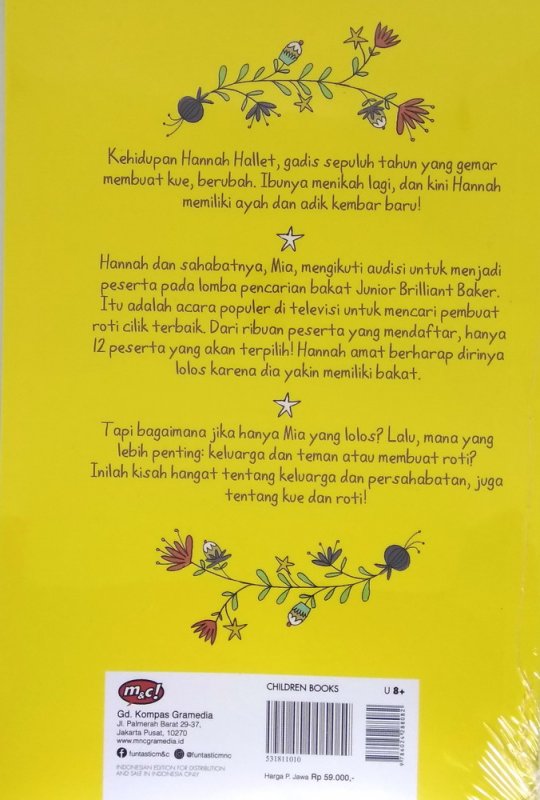 Kehidupan Hannah Hallet, gadis sepuluh tahun yang gemar
membuat kue, berubah. Ibunya menikah lagi, dan kini Hannah
memiliki ayah dan adik kembar baru!
Hannah dan sahabatnya, Mia, mengikuti audisi untuk menjadi
peserta pada lomba pencarian bakat Junior Brilliant Baker.
Itu adalah acara populer di televisi untuk mencari pembuat
roti cilik terbaik. Dari ribuan peserta yang mendaftar, hanya
12 peserta yang akan terpilih! Hannah amat berharap dirinya
lolos karena dia yakin memiliki bakat.
Tapi bagaimana jika hanya Mia yang lolos? Lalu, mana yang
lebih penting: keluarga dan teman atau membuat roti?
Inilah kisah hangat tentang keluarga dan persahabatan, juga
tentang kue dan roti!
m&c!
Gd. Kompas Gramedia
Jl. Palmerah Barat 29-37,
Jakarta Pusat, 10270
www.mncgramedia.id
funtasticm&c @funtasticmnc
INDONESIAN EDITION FOR DISTRIBUTION
AND SALE IN INDONESIA ONLY
CHILDREN BOOKS
U 8+
531811010
Harga P. Jawa Rp 59.000,-